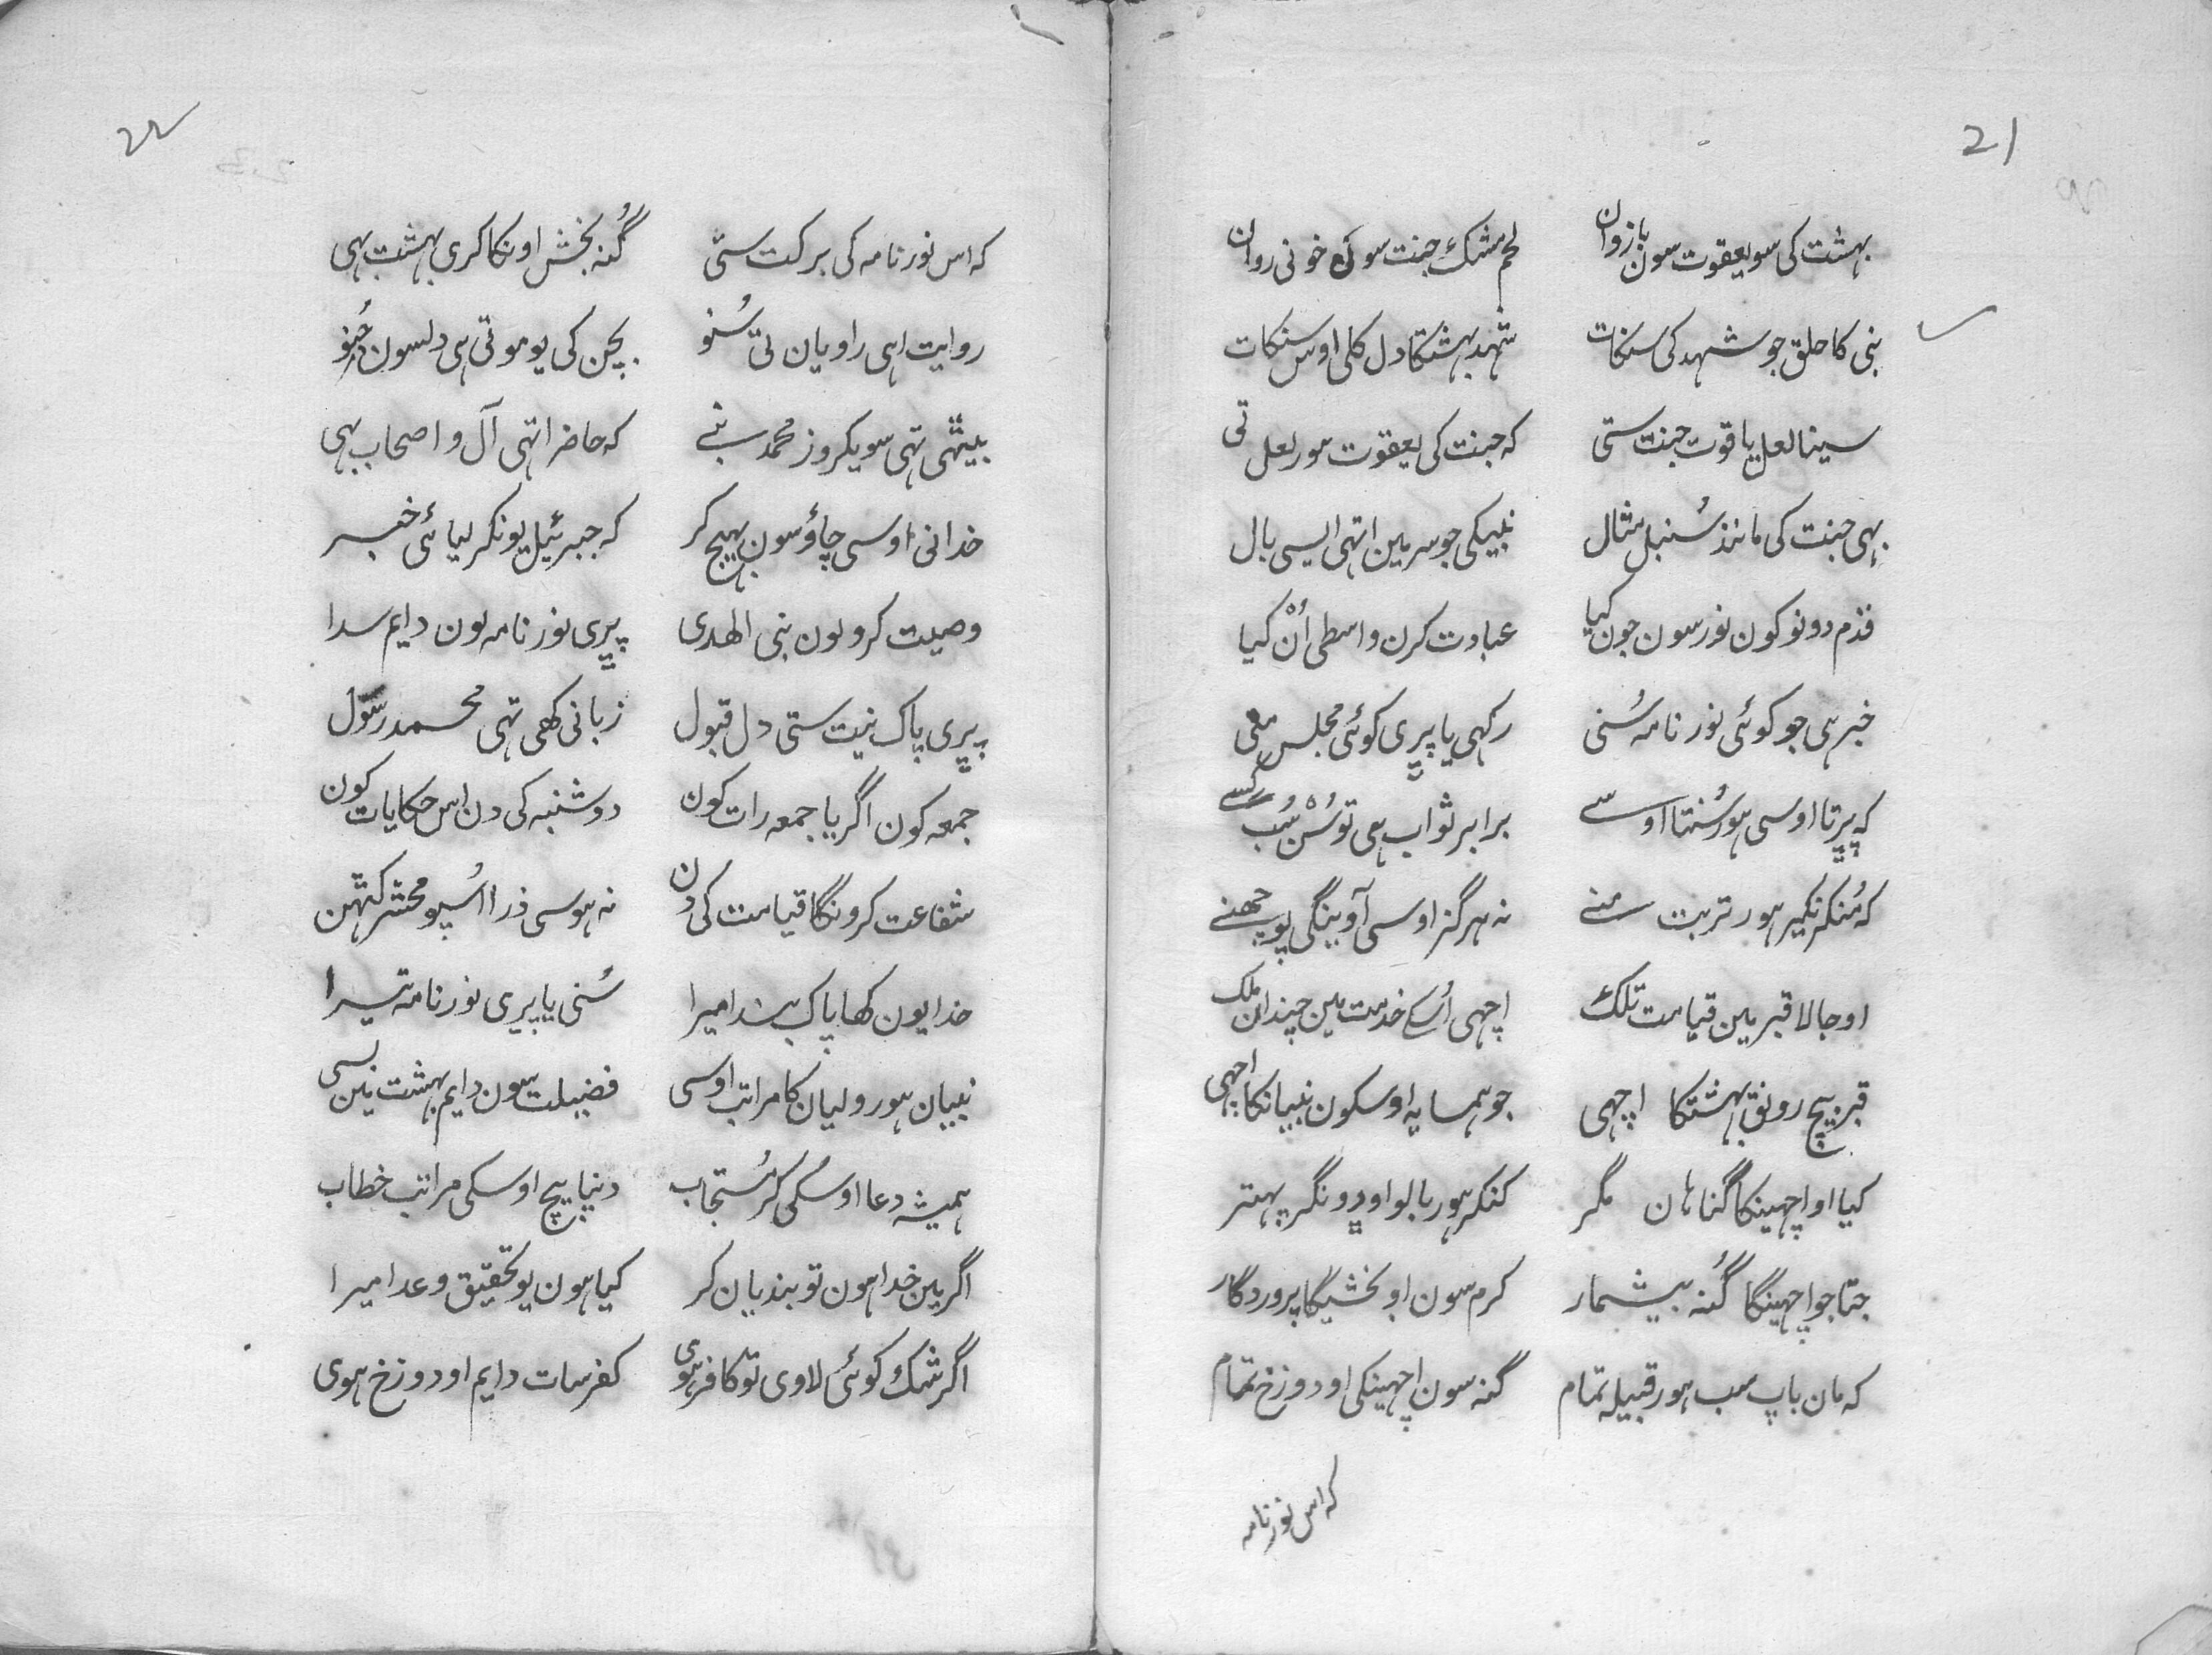 21
بہشت کی سو یعقوت سون بازوان لحم مشک جنت سو کی خونی روان
نبی کا حلق جو شہد کی سنکات شہد بہشتکا دل کلی اوس سنکات
سینا لعل یاقوت جنت ستی کہ جنت کی یعقوت ہور لعل تی
بہی جنت کی مانند سُنبل مثال نبیکی جو سر مین اتہی ایسی بال
قدم دونو کون نور سون جون کیا عبادت کرن واسطی اُنْ کیا
خبر ہی جو کوئی نور نامہ سُنی رکہی یا پڑی کوئی مجلس منی
کہ پڑتا اوسی ہور سُنتا اوسے برابر ثواب ہی تو سُنْ سُب کسے
کہ مُنکر نکیر ہور تربت منے نہ ہرگز اوسی آوینگی پوچھنے
اوجالا قبر مین قیامت تلک اچہی اُسکے خدمت مین چندان ملک
قبر بیچ رونق بہشتکا اچہی جو ہمسایہ اوسکون نبیانکا اچہی
کیا او اچہینکا گناہان مگر کنکر ہور بالو او ڈونگر پہتر
جتا جو اچہینگا گُنہ بیشمار کرم سون او بخشیگا پروردگار
کہ مان باپ سب ہور قبیلہ تمام گنہ سون اچہینکی او دوزخ تمام
کہ اس نور نامہ
22
کہ اس نور نامہ کی برکت ستی گُنہ بخش اونکا کری بہشت بہی
روایت اہی راویان تی سُنو بچن کی یو موتی ہی دلسون چُنو
بیٹھی تہی سو یکروز محمد نبے کہ حاضر اتہی آل و اصحاب بہی
خدانی اوسی چاؤ سون بہیج کر کہ جبرئیل یونکر لیائی خبر
وصیت کرو یون نبی الھدی پڑی نور نامہ یون دایم سدا
پڑی پاک نیت ستی دل قبول زبانی کھی تہی محمد رسول
جمعہ کون اگر یا جمعہ رات کون دوشنبہ کی دن اس حکایات کون
شفاعت کرونگا قیامت کی دن نہ ہوسی ذرا اُسپو محشر کٹہن
خدا یون کھا پاک بندا میرا سُنی یا پڑی نور نامہ تیرا
نبیان ہور ولیان کا مراتب اوسی فضیلت سون دایم بہشت مین بسی
ہمیشہ دعا اوسکی کر مُستجاب دنیا بیچ اوسکی مراتب خطاب
اگر مین خدا ہون تو بندیان کر کیا ہون یو تحقیق وعدا میرا
اگر شک کوئی لاوی تو کافر ہوی کفر سات دایم او دوزخ ہوی